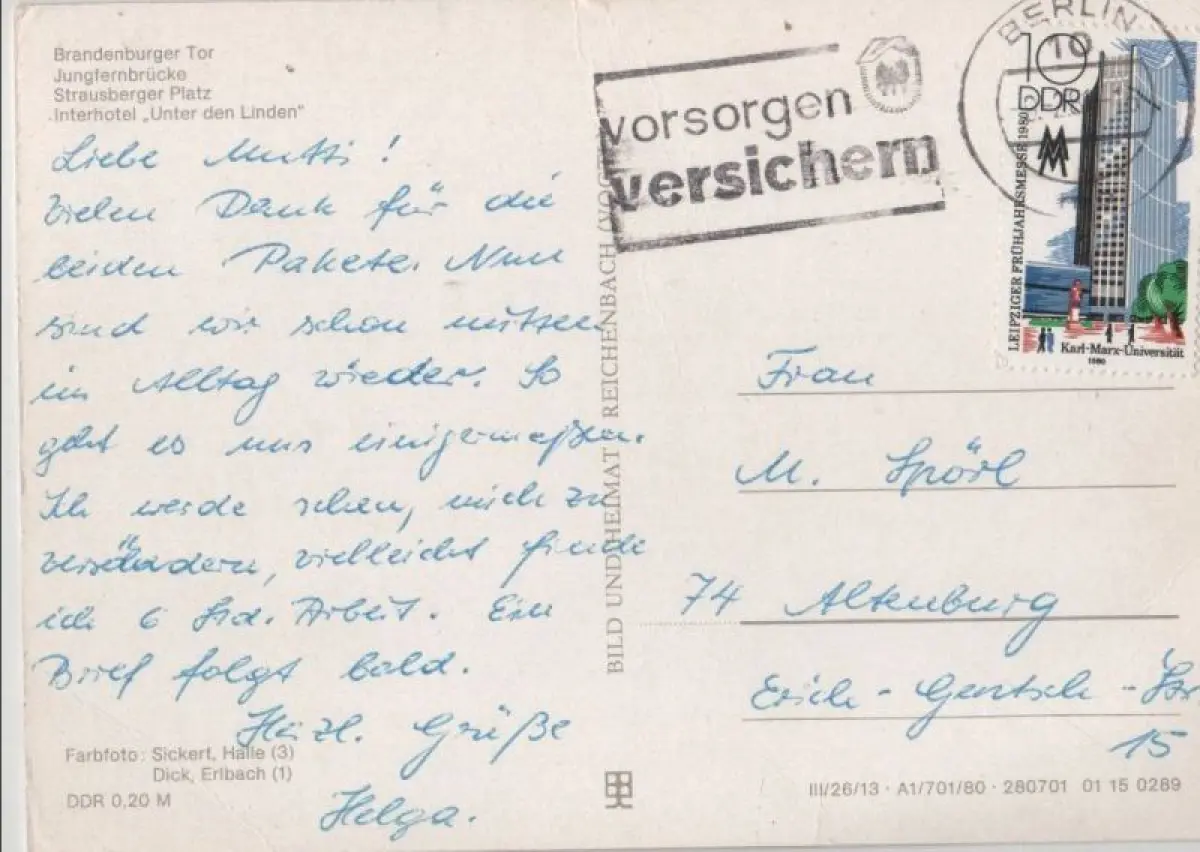 Brandenburger Tor
Jungfernbrücke
Strausberger Platz
Interhotel „Unter den Linden"
Liebe Mutti!
Vielen Dank für die
beiden Pakete. Nun
sind wir schon mitten
im Alltag wieder. So
geht es uns einigermaßen.
Ich werde sehen, mich zu
verändern, vielleicht finde
ich 6 Std. Arbeit. Ein
Brief folgt bald.
Herzl. Grüße
Helga.
Farbfoto: Sickert, Halle (3)
Dick, Erlbach (1)
DDR 0,20 M
BILD UND HEIMAT REICHENBACH (VOGT
vorsorgen
versichern
BERLIN
10
DDR
LEIPZIGER FRÜHJAHRSMESSE 1980
Karl-Marx-Universität
1980
Frau
M. Spörl
74 Altenburg
Erich-Gentsch-Str
15
III/26/13 · A1/701/80 · 280701 01 15 0289